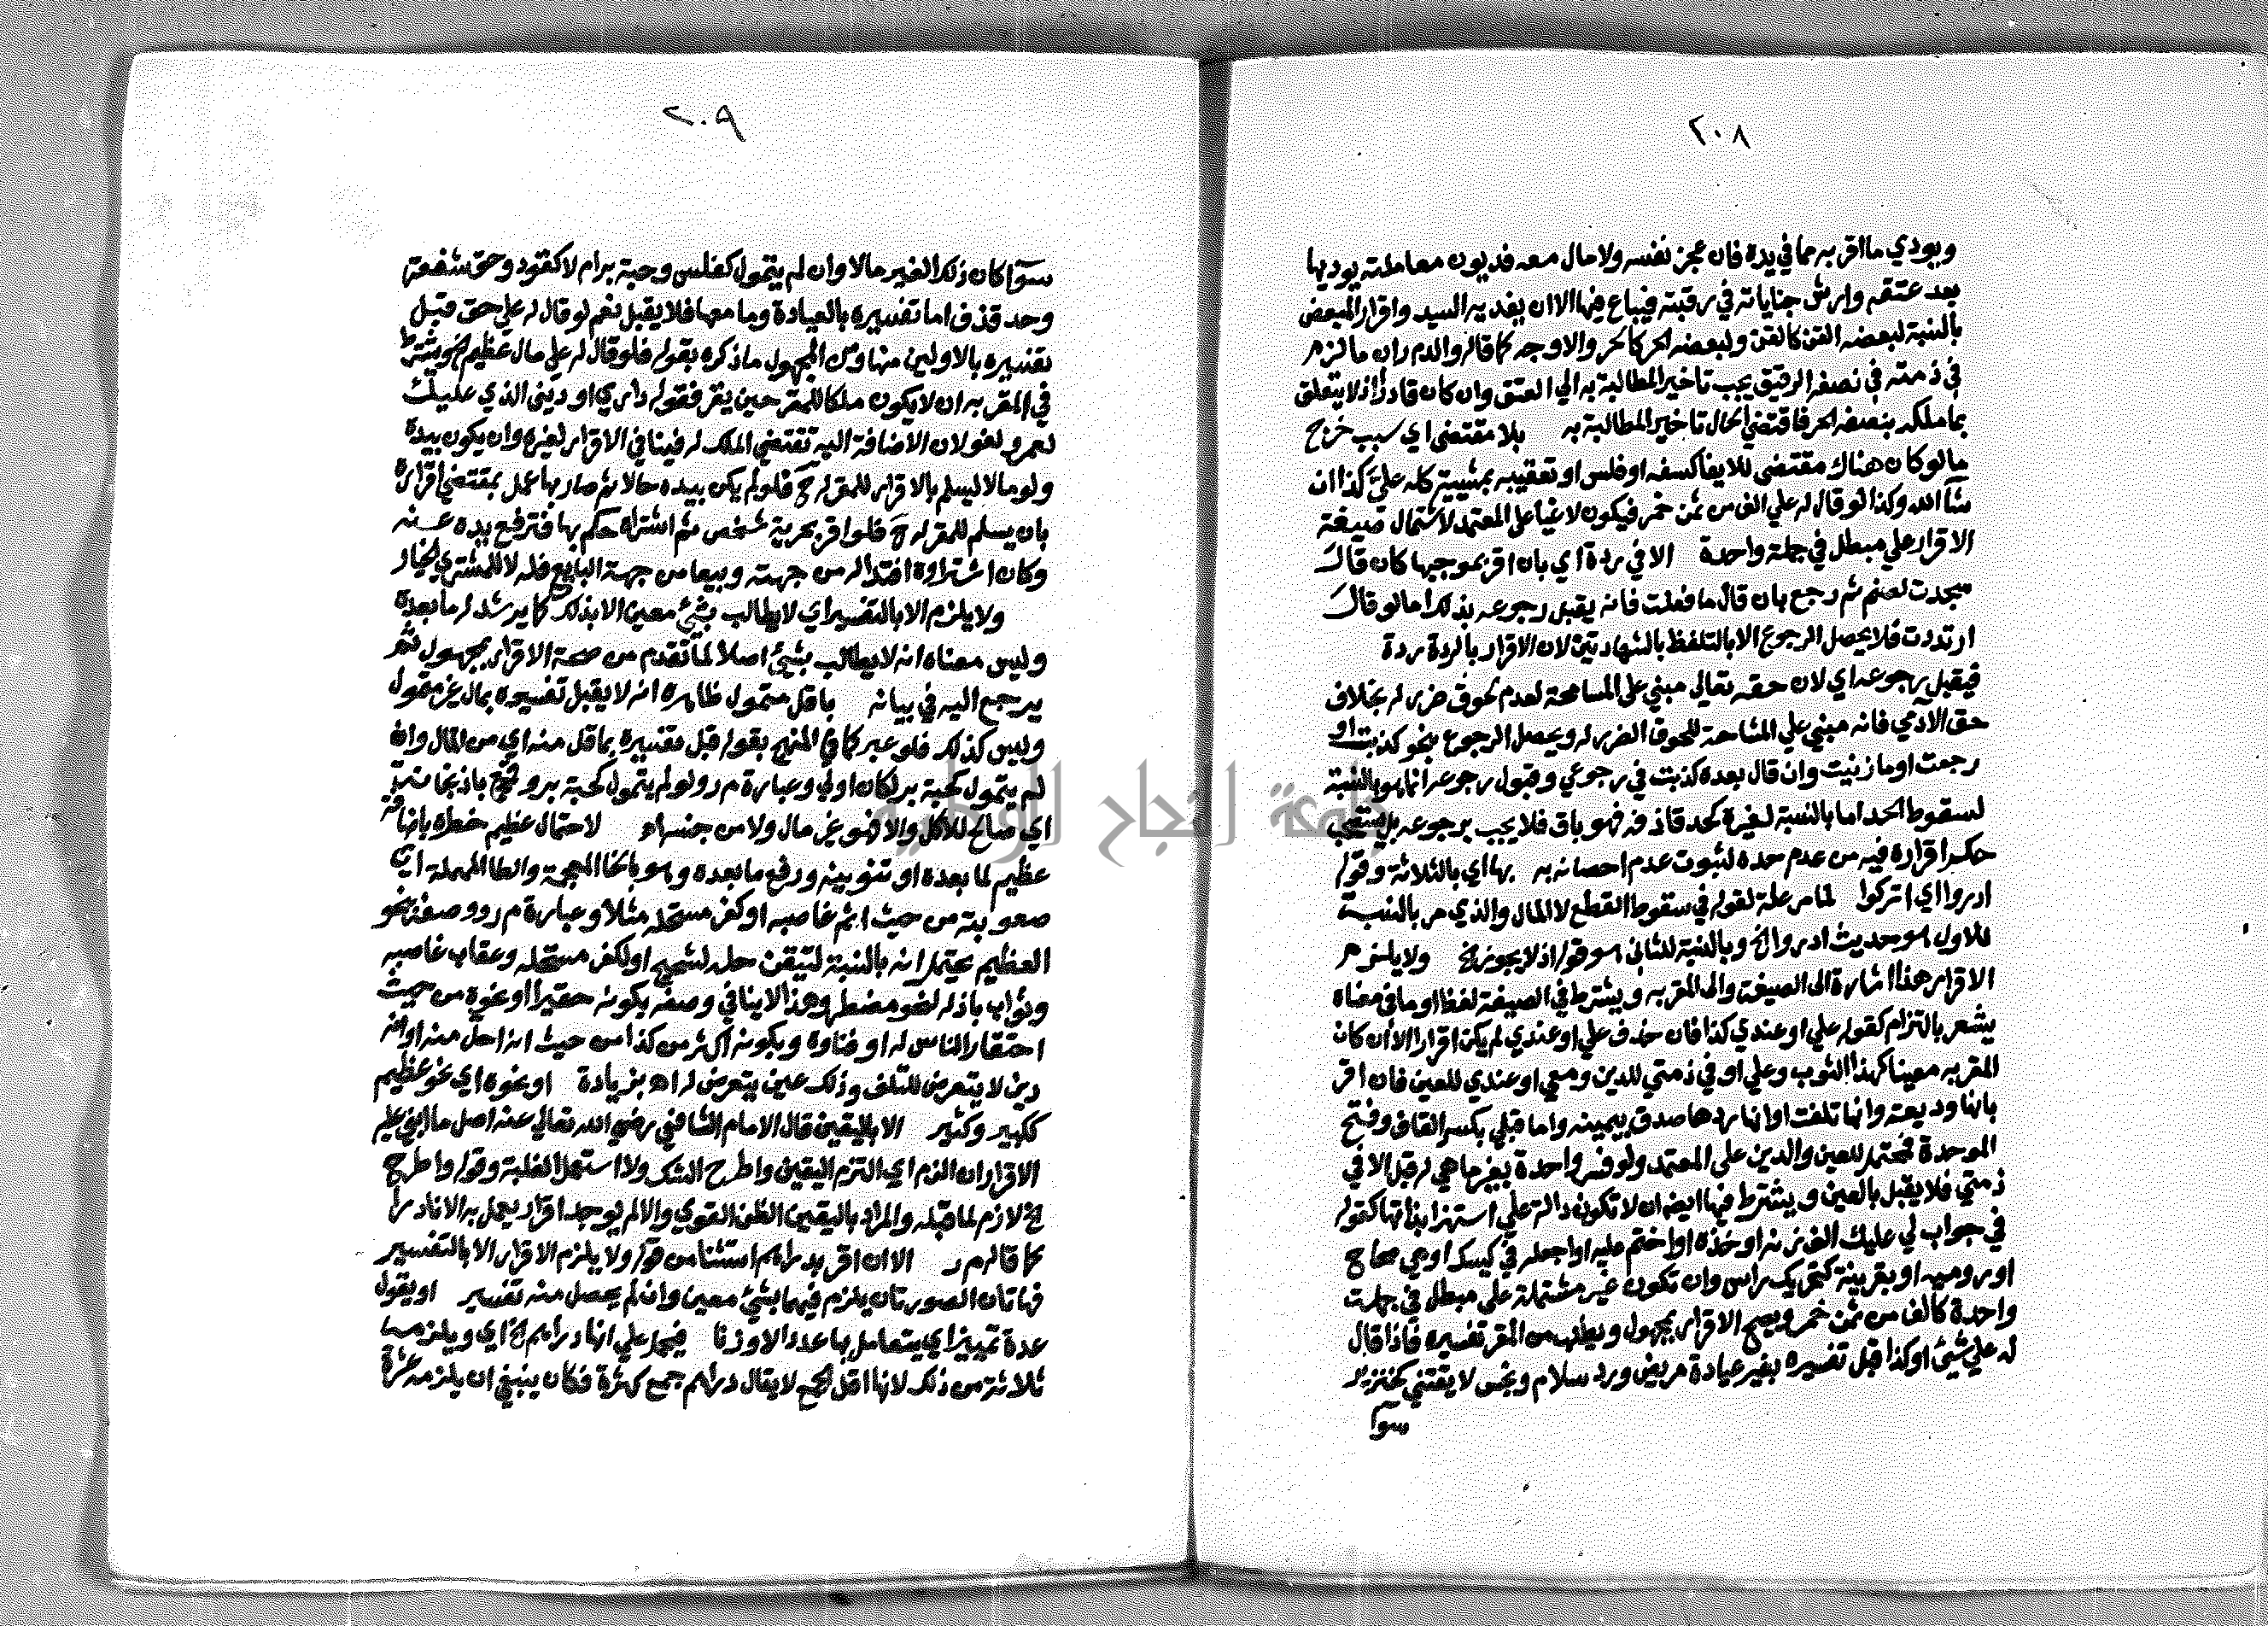 ٢٠٨
ويودي ما اقر به مما في يده فان عجز نفسه ولا مال معه فديون معاملته يوديها
بعد عتقه وارش جناياته في رقبته فيباع فيها الا ان يفديه السيد واقرار المبعض
بالنسبة لبعضه القن كالقن ولبعضه الحر كالحر والاوجه كما قاله والدم ر ان ما لزم
في ذمته في نصفه الرقيق يجب تاخير المطالبة به الي العتق وان كان قادرا اذ لا يتعلق
بما ملكه بنصفه الحر فاقتضي الحال تاخير المطالبة به بلا مقتضي اي سبب خرج
ما لو كان هناك مقتضي للايفا كسفه او فلس او تعقيبه بمشيية كله علي كذا ان
شآ الله وكذا لو قال له علي الف من ثمن خمر فيكون لاغيا علي المعتمد لاشتمال صيغة
الاقرار علي مبطل في جملة واحدة الا في ردة اي بان اقر بموجبها كان قال
سجدت لصنم ثم رجع بان قال ما فعلت فانه يقبل رجوعه بذلك اما لو قال
ارتددت فلا يحصل الرجوع الا بالتلفظ بالشهادتين لان الاقرار بالردة ردة
فيقبل رجوعه اي لان حقه تعالي مبني علي المسامحة لعدم لحوق ضرر له بخلاف
حق الآدمي فانه مبني علي المشاحة للحوق الضرر له ويحصل الرجوع بنحو كذبت او
رجعت او ما زنيت وان قال بعده كذبت في رجوعي وقبول رجوعه انما هو بالنسبة
لسقوط الحد اما بالنسبة لغيره كحد قاذفه فهو باق فلا يجب برجوعه بل يستصحب
حكم اقراره فيه من عدم حده لثبوت عدم احصانه به بها اي بالثلاثة وقوله
ادروا اي اتركوا لما مر علة لقوله في سقوط القطع لا المال والذي مر بالنسبة
للاول هو حديث ادروا الخ وبالنسبة للثاني هو قوله اذ لا يجوز الخ ولا يلزم
الاقرار هذا اشارة الي الصيغة والي المقر به ويشترط في الصيغة لفظ او ما في معناه
يشعر بالتزام كقوله علي او عندي كذا فان حذف علي او عندي لم يكن اقرارا الا ان كان
المقر به معينا كهذا الثوب وعلي او في ذمتي للدين ومعي او عندي للعين فان اقر
بانها وديعة وانها تلفت او انها ردها صدق بيمينه واما قبلي بكسر القاف وفتح
الموحدة فمحتمل للعين والدين علي المعتمد ولو فسر واحدة بغير ما هي له قبل الا في
ذمتي فلا يقبل بالعين ويشترط فيها ايضا ان لا تكون دالة علي استهزا بذاتها كقوله
في جواب لي عليك الف زنه او خذه او اختم عليه او اجعله في كيسك او هي صحاح
او رومية او بقرينة كتحريك راس وان تكون غير مشتملة علي مبطل في جملة
واحدة كالف من ثمن خمر ويصح الاقرار بمجهول ويطلب من المقر تفسيره فاذا قال
له علي شيئ او كذا قبل تفسيره بغير عيادة مريض ورد سلام ونجس لا يقتني كخنزير
سوا
٢٠٩
سوآ كان ذلك الغير مالا وان لم يتمول كفلس وحبة بر ام لا كقود وحق شفعة
وحد قذف اما تفسيره بالعيادة وما معها فلا يقبل نعم لو قال له علي حق قبل
تفسيره بالاولين منها ومن المجهول ما ذكره بقوله فلو قال له علي مال عظيم الخ ويشترط
في المقر به ان لا يكون ملكا للمقر حين يقر فقوله داري او ديني الذي عليك
لعمرو لغو لان الاضافة اليه تقتضي الملك له فينافي الاقرار لغيره وان يكون بيده
ولو مالا ليسلم بالاقرار للمقر له ح فلو لم يكن بيده حالا ثم صار بها عمل بمقتضي اقراره
بان يسلم للمقر له ح فلو اقر بحرية شخص ثم اشتراه حكم بها فترفع يده عنه
وكان اشتراوه افتدا له من جهته وبيعا من جهة البايع فله لا للمشتري الخيار
ولا يلزم الا بالتفسير اي لا يطالب بشيئ معين الا بذلك كما يرشد له ما بعده
وليس معناه انه لا يطالب بشيئ اصلا لما تقدم من صحة الاقرار بمجهول ثم
يرجع اليه في بيانه باقل متمول ظاهره انه لا يقبل تفسيره بمال غير متمول
وليس كذلك فلو عبر كما في المنهج بقوله قبل تفسيره بما قل منه اي من المال وان
لم يتمول كحبة بر لكان اولي وعبارة م ر ولو لم يتمول كحبة بر وقمع باذنجانة
اي صالح للاكل والا فهو غير مال ولا من جنسه اه لاحتمال عظيم خطره باضافة
عظيم لما بعده او تنوينه ورفع ما بعده وهو بالخا المعجمة والطا المهملة اي
صعوبته من حيث اثم غاصبه او كفر مستحله مثلا وعبارة م ر ووصفه بنحو
العظيم يحتمل انه بالنسبة لتيقن حله لشحيح او لكفر مستحله وعقاب غاصبه
وثواب باذله لنحو مضطر وهذا لا ينافي وصفه بكونه حقيرا او نحوه من حيث
احتقار الناس له او فناوه وبكونه اكثر من كذا من حيث انه احل منه او انه
دين لا يتعرض للتلف وذلك عين يتعرض له اه بزيادة او نحوه اي نحو عظيم
ككبير وكثير الا باليقين قال الامام الشافعي رضي الله تعالي عنه اصل ما ابني عليه
الاقرار ان الزم اي التزم اليقين واطرح الشك ولا استعمل الغلبة وقوله واطرح
الخ لازم لما قبله والمراد باليقين الظن القوي والا لم يوجد اقرار يعمل به الا نادرا
كما قاله م ر الا ان اقر بدراهم استثنا من قوله ولا يلزم الاقرار الا بالتفسير
فهاتان الصورتان يلزم فيهما بشيئ معين وان لم يحصل منه تفسير او يقول
عدة تمييز اي يتعامل بها عددا لا وزنا فيحمل علي انها دراهم الخ اي ويلزمه
ثلاثة من ذلك لانها اقل الجمع لا يقال دراهم جمع كثرة فكان ينبغي ان يلزمه عشرة